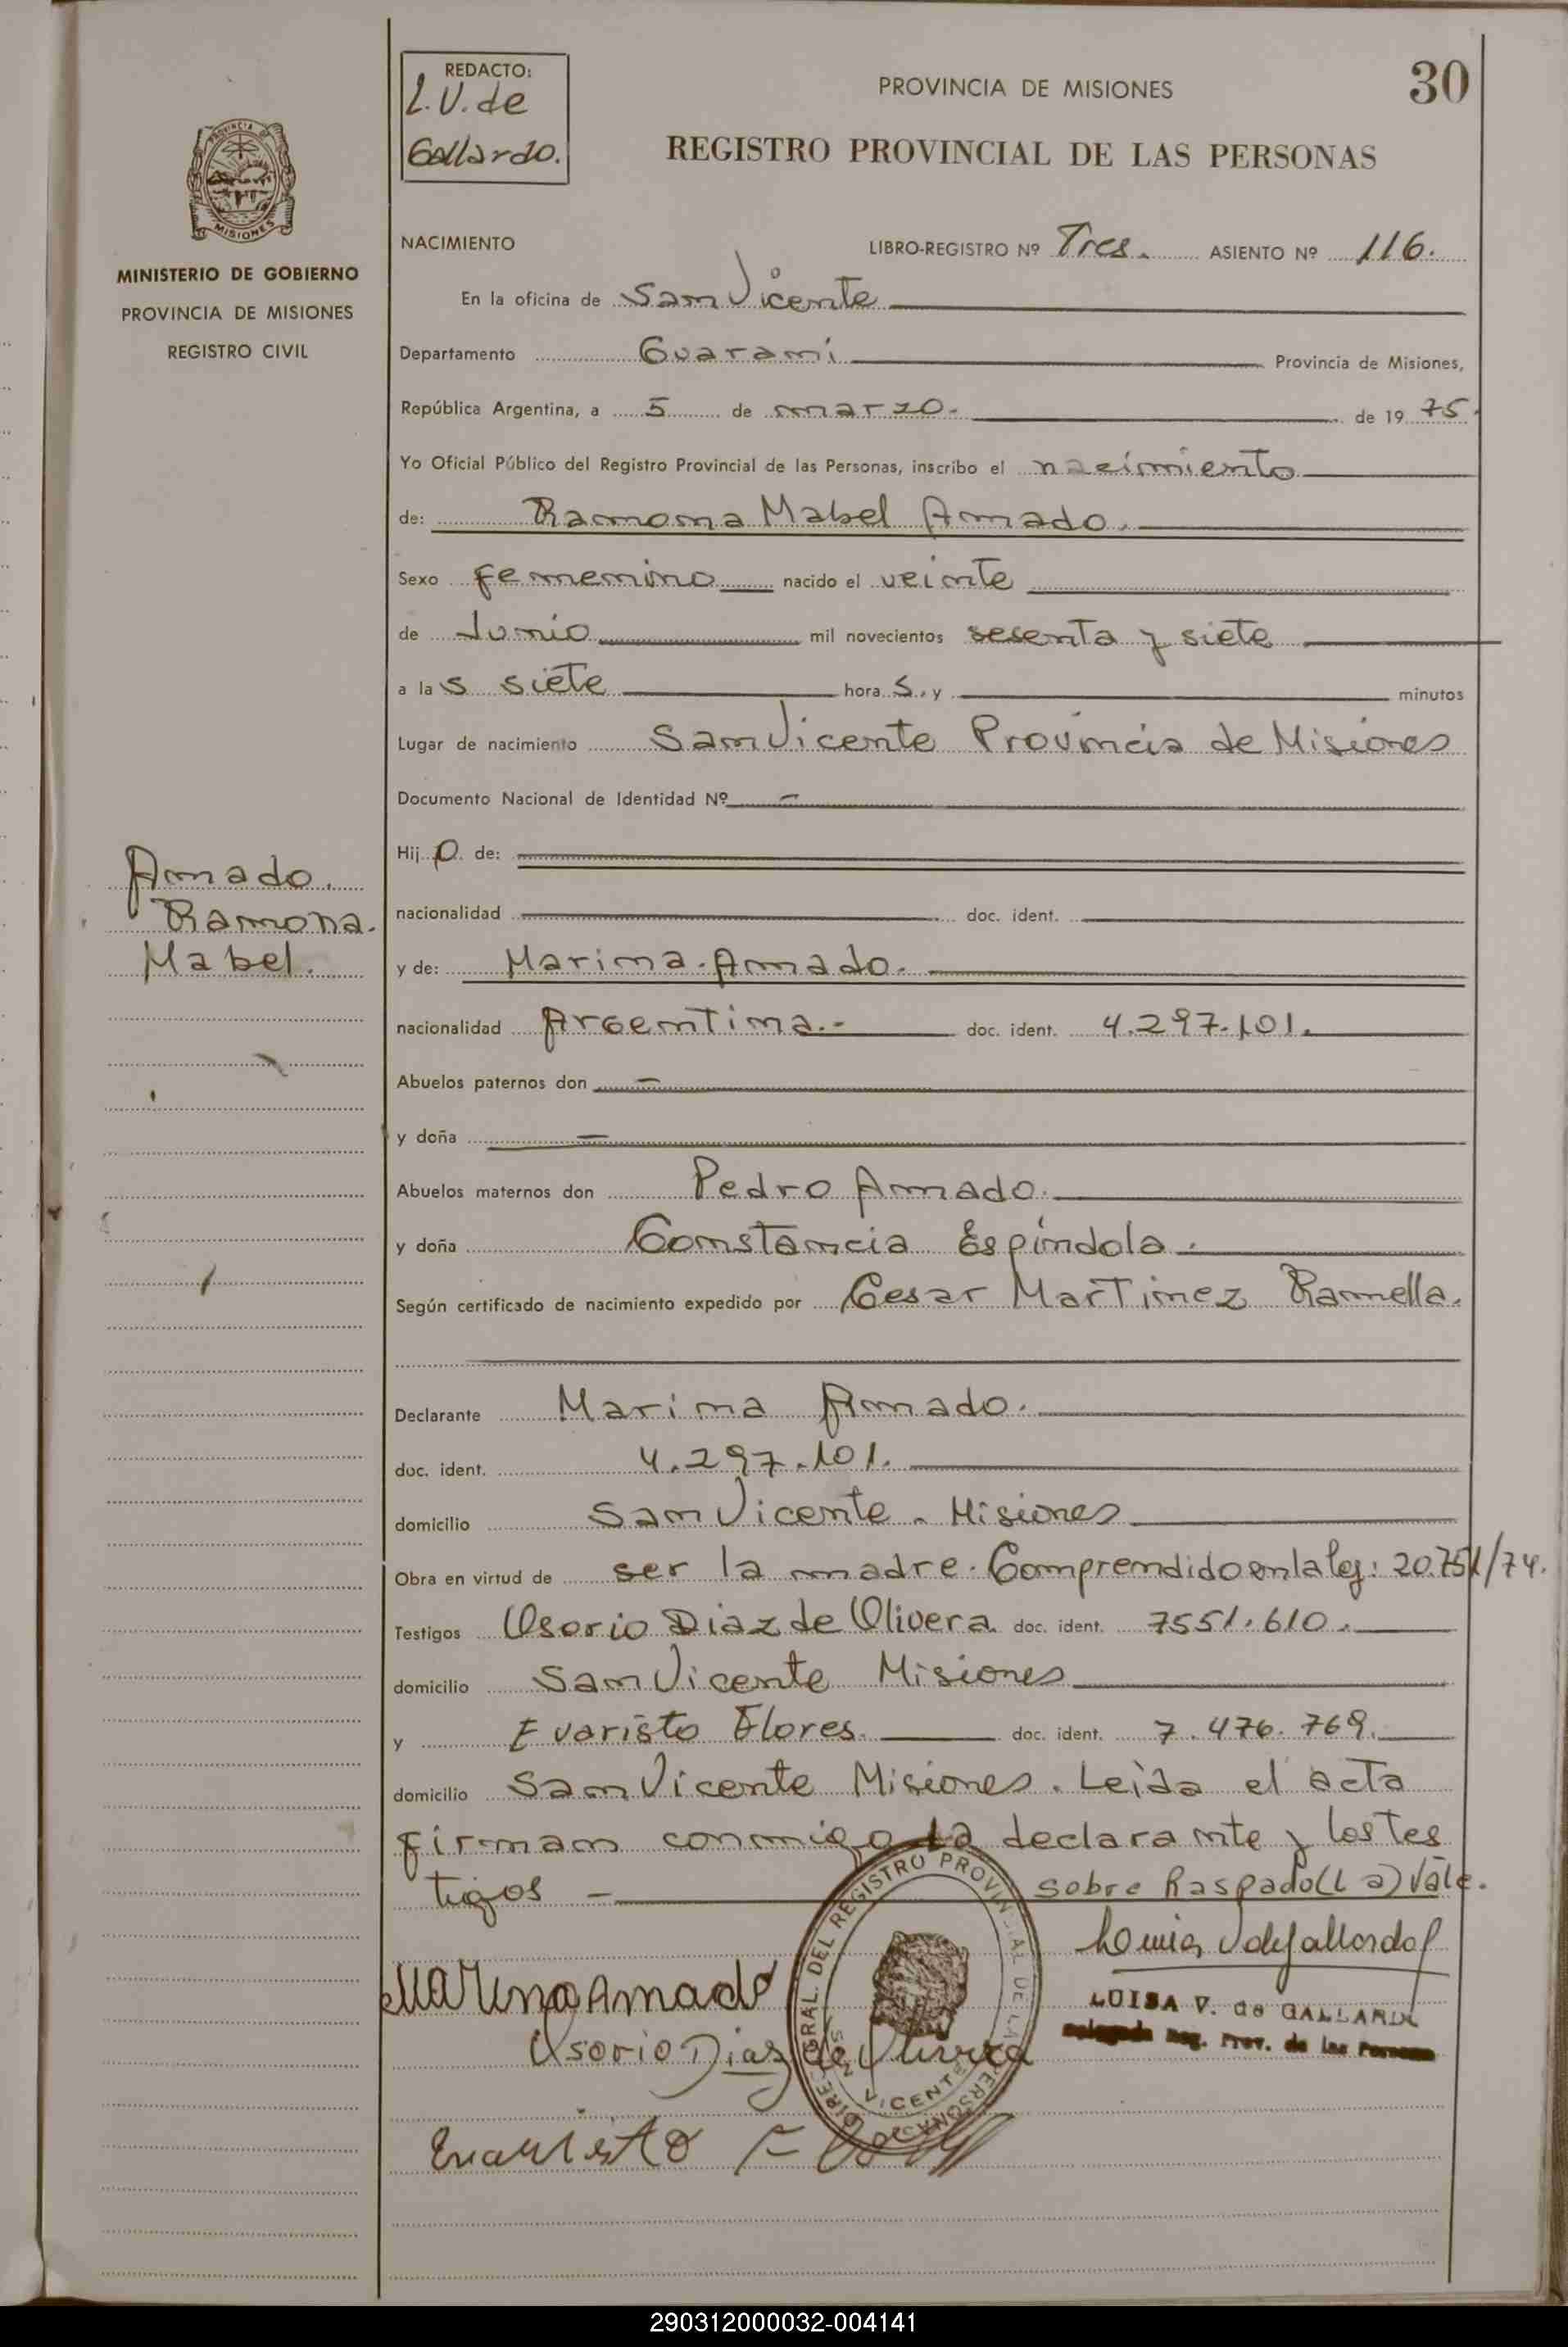 REDACTO:
L.V. de
Gallardo.
PROVINCIA DE MISIONES
30
REGISTRO PROVINCIAL DE LAS PERSONAS
PROVINCIA DE
MISIONES
MINISTERIO DE GOBIERNO
PROVINCIA DE MISIONES
REGISTRO CIVIL
NACIMIENTO LIBRO-REGISTRO Nº Tres. ASIENTO Nº 116.
En la oficina de San Vicente
Departamento Guaraní Provincia de Misiones,
República Argentina, a 5 de marzo. de 1975.
Yo Oficial Público del Registro Provincial de las Personas, inscribo el nacimiento
de: Ramona Mabel Amado.
Sexo femenino nacido el veinte
de Junio mil novecientos sesenta y siete
a las siete horas. y minutos
Lugar de nacimiento San Vicente Provincia de Misiones
Documento Nacional de Identidad Nº -
Hijo de:
nacionalidad doc. ident.
Amado.
Ramona.
Mabel.
y de: Marina. Amado.
nacionalidad Argentina.- doc. ident. 4.297.101.
Abuelos paternos don -
y doña -
Abuelos maternos don Pedro Amado.
y doña Constancia Espíndola.
Según certificado de nacimiento expedido por Cesar Martinez Ramella.
Declarante Marina Amado.
doc. ident. 4.297.101.
domicilio San Vicente. Misiones
Obra en virtud de ser la madre. Comprendido en la ley: 20.751/74.
Testigos Osorio Diaz de Olivera. doc. ident. 7551.610.
domicilio San Vicente Misiones
y Evaristo Flores. doc. ident. 7.476.769.
domicilio San Vicente Misiones. Leída el acta
firman conmigo la declarante y los tes
tigos - sobre Raspado (La) Vale.
Marina Amado
LUISA V. de GALLARDO
Reg. Prov. de las Personas
Osorio Diaz de Olivera
DIREC GRAL. DEL REGISTRO PROVINCIAL DE LAS PERSONAS
SN VICENTE
Evaristo
290312000032-004141